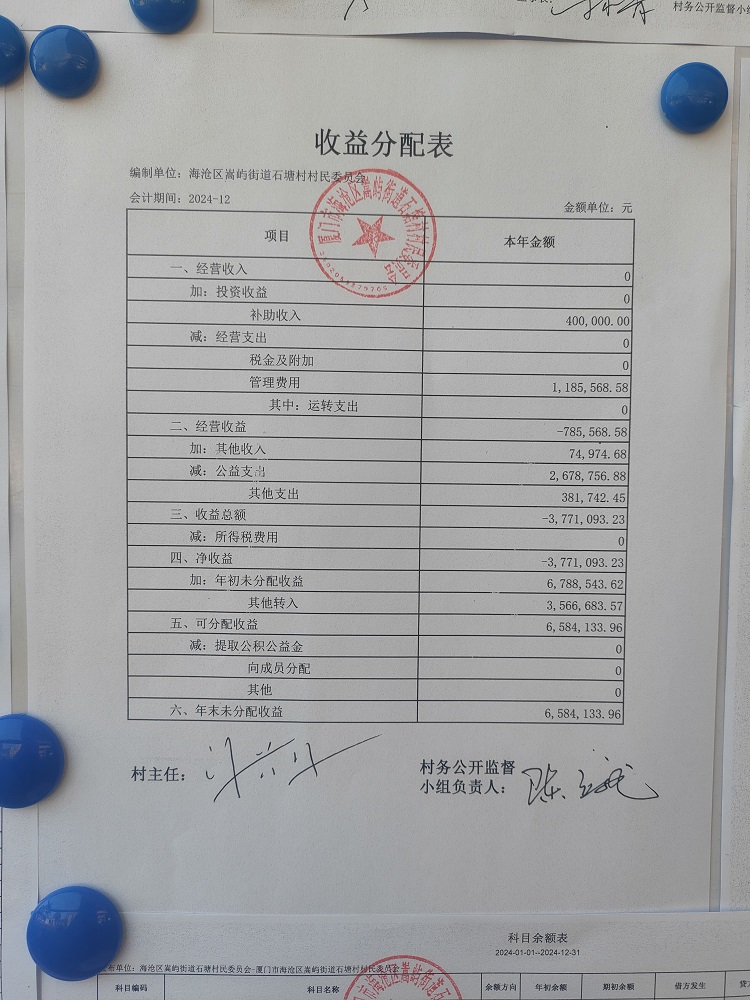 村务公开监督小组
收益分配表
编制单位：海沧区嵩屿街道石塘村村民委员会
会计期间：2024-12
金额单位：元
项目 本年金额
一、经营收入 0
加：投资收益 0
补助收入 400,000.00
减：经营支出 0
税金及附加 0
管理费用 1,185,568.58
其中：运转支出 0
二、经营收益 -785,568.58
加：其他收入 74,974.68
减：公益支出 2,678,756.88
其他支出 381,742.45
三、收益总额 -3,771,093.23
减：所得税费用 0
四、净收益 -3,771,093.23
加：年初未分配收益 6,788,543.62
其他转入 3,566,683.57
五、可分配收益 6,584,133.96
减：提取公积公益金 0
向成员分配 0
其他 0
六、年末未分配收益 6,584,133.96
村主任：
村务公开监督
小组负责人：
科目余额表
2024-01-01--2024-12-31
海沧区嵩屿街道石塘村民委员会-厦门市海沧区嵩屿街道石塘村村民委员会
科目编码 科目名称 余额方向 年初余额 期初余额 借方发生